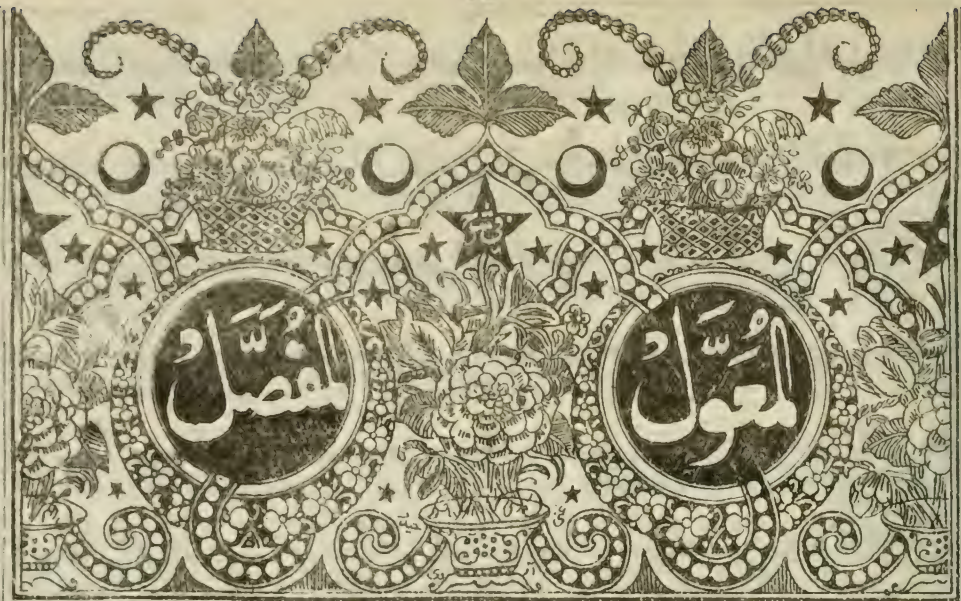 المُعَوَّل المُفَصَّل